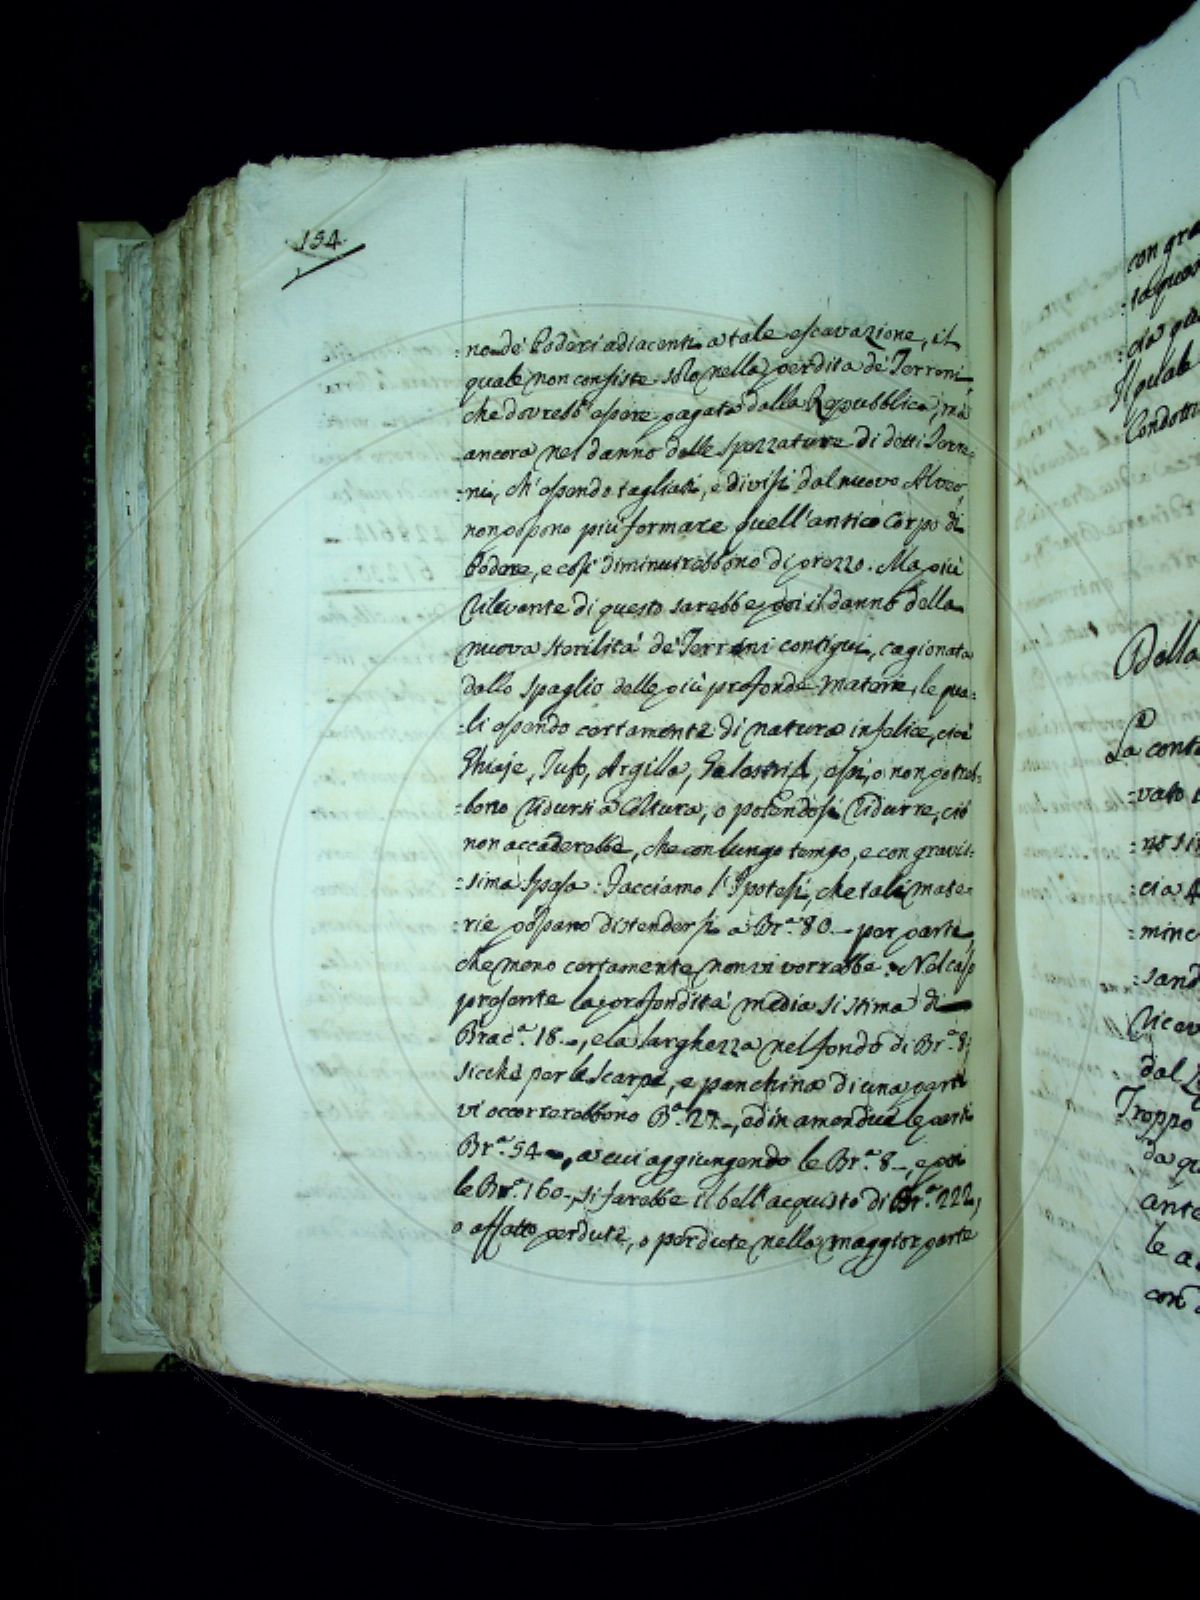 154
:no de' Poderi adiacenti a tale escavazione, il
quale non consiste solo nella perdita de' Terreni,
che dovrebb' essere pagata dalla Repubblica, mà
ancora nel danno delle spezzature di detti Terre:
:ni, ch' essendo tagliati, e divisi dal nuovo Alveo,
non possono più formare quell' antico Corpo di
Podere, e così diminuirebbono di prezzo. Ma più
rilevante di questo sarebbe poi il danno della
nuova sterilità de' Terreni contigui, cagionata
dallo spaglio delle più profonde materie, le qua:
:li essendo certamente di natura infelice, cioè
Ghiaje, Tufo, Argilla, Galestri, essi, o non potreb:
:bono ridursi a Coltura, o potendosi ridurre, ciò
non accaderebbe, che con lungo tempo, e con gravis:
:sima spesa: Facciamo l' Ipotesi, che tali mate:
:rie possano distendersi a Br.ª 80.- per parte,
che meno certamente non vi vorrebbe. Nel caso
presente la profondità media si stima di
Brac.ª 18.-, e la larghezza nel fondo di Br.ª 8;
sicchè per le scarpe, e panchina di una parte
vi occorrerebbono B.ª 27.-, ed in amendue le parti
Br.ª 54.-, a cui aggiungendo le Br.ª 8.-, e poi
le Br.ª 160.-, si farebbe il bell' acquisto di Br.ª 222,
o affatto perdute, o perdute nella maggior parte
con gra
Il quale
Condotti
Della
La cont
vato
:cia
:minc
:sand
dal
Troppo
da qu
ante
le a
con